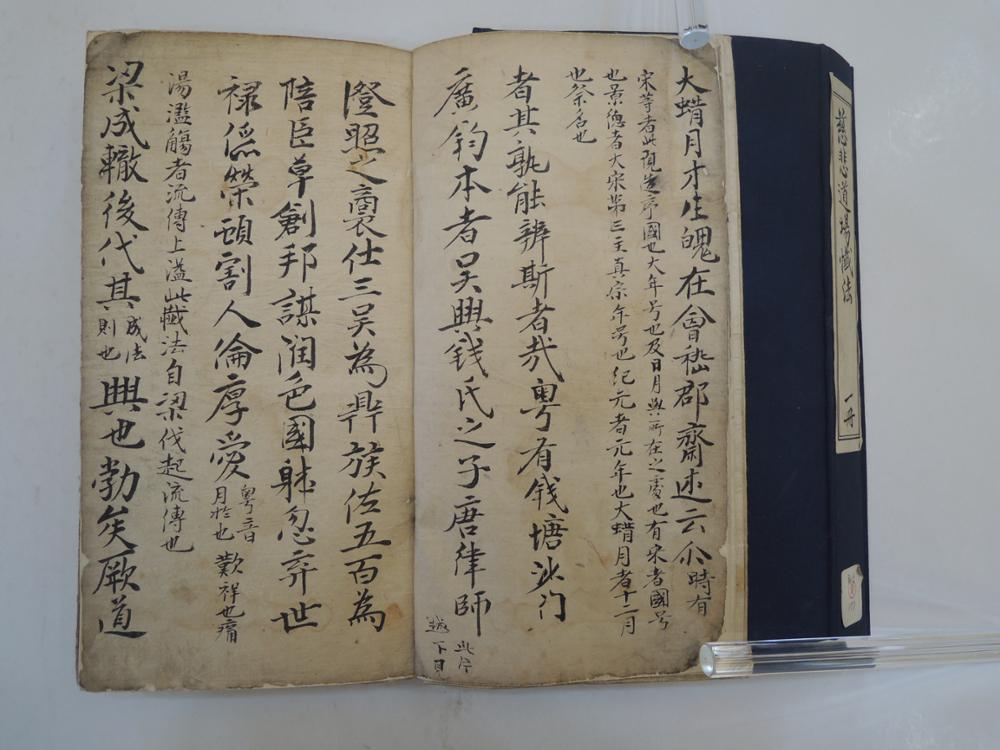 大蜡月才生魄在會嵇郡齋述云尒時有
宋等者此蔵造序國也大年号也及日月與所在之處也有宋者國号
也景德者大宋第三主真宗年号也纪元者元年也大蜡月者十二月
也祭名也
者其孰能辨斯者㢤粤有钱塘沙门
廣鈞本者吴興钱氏之子唐律師
此序
越下目
澄照之裔仕三吴為鼎族佐五百為
陪臣草創邦謀润色國躰忽弃世
禄係榮頓割人倫厚愛
粤音
月於也
歎祥也痛
湯濫觴者流傳上溢此懴法自梁代起流傳也
梁成轍後代其
成法
則也
興也勃矣厥道
慈悲道場懺法
一冊